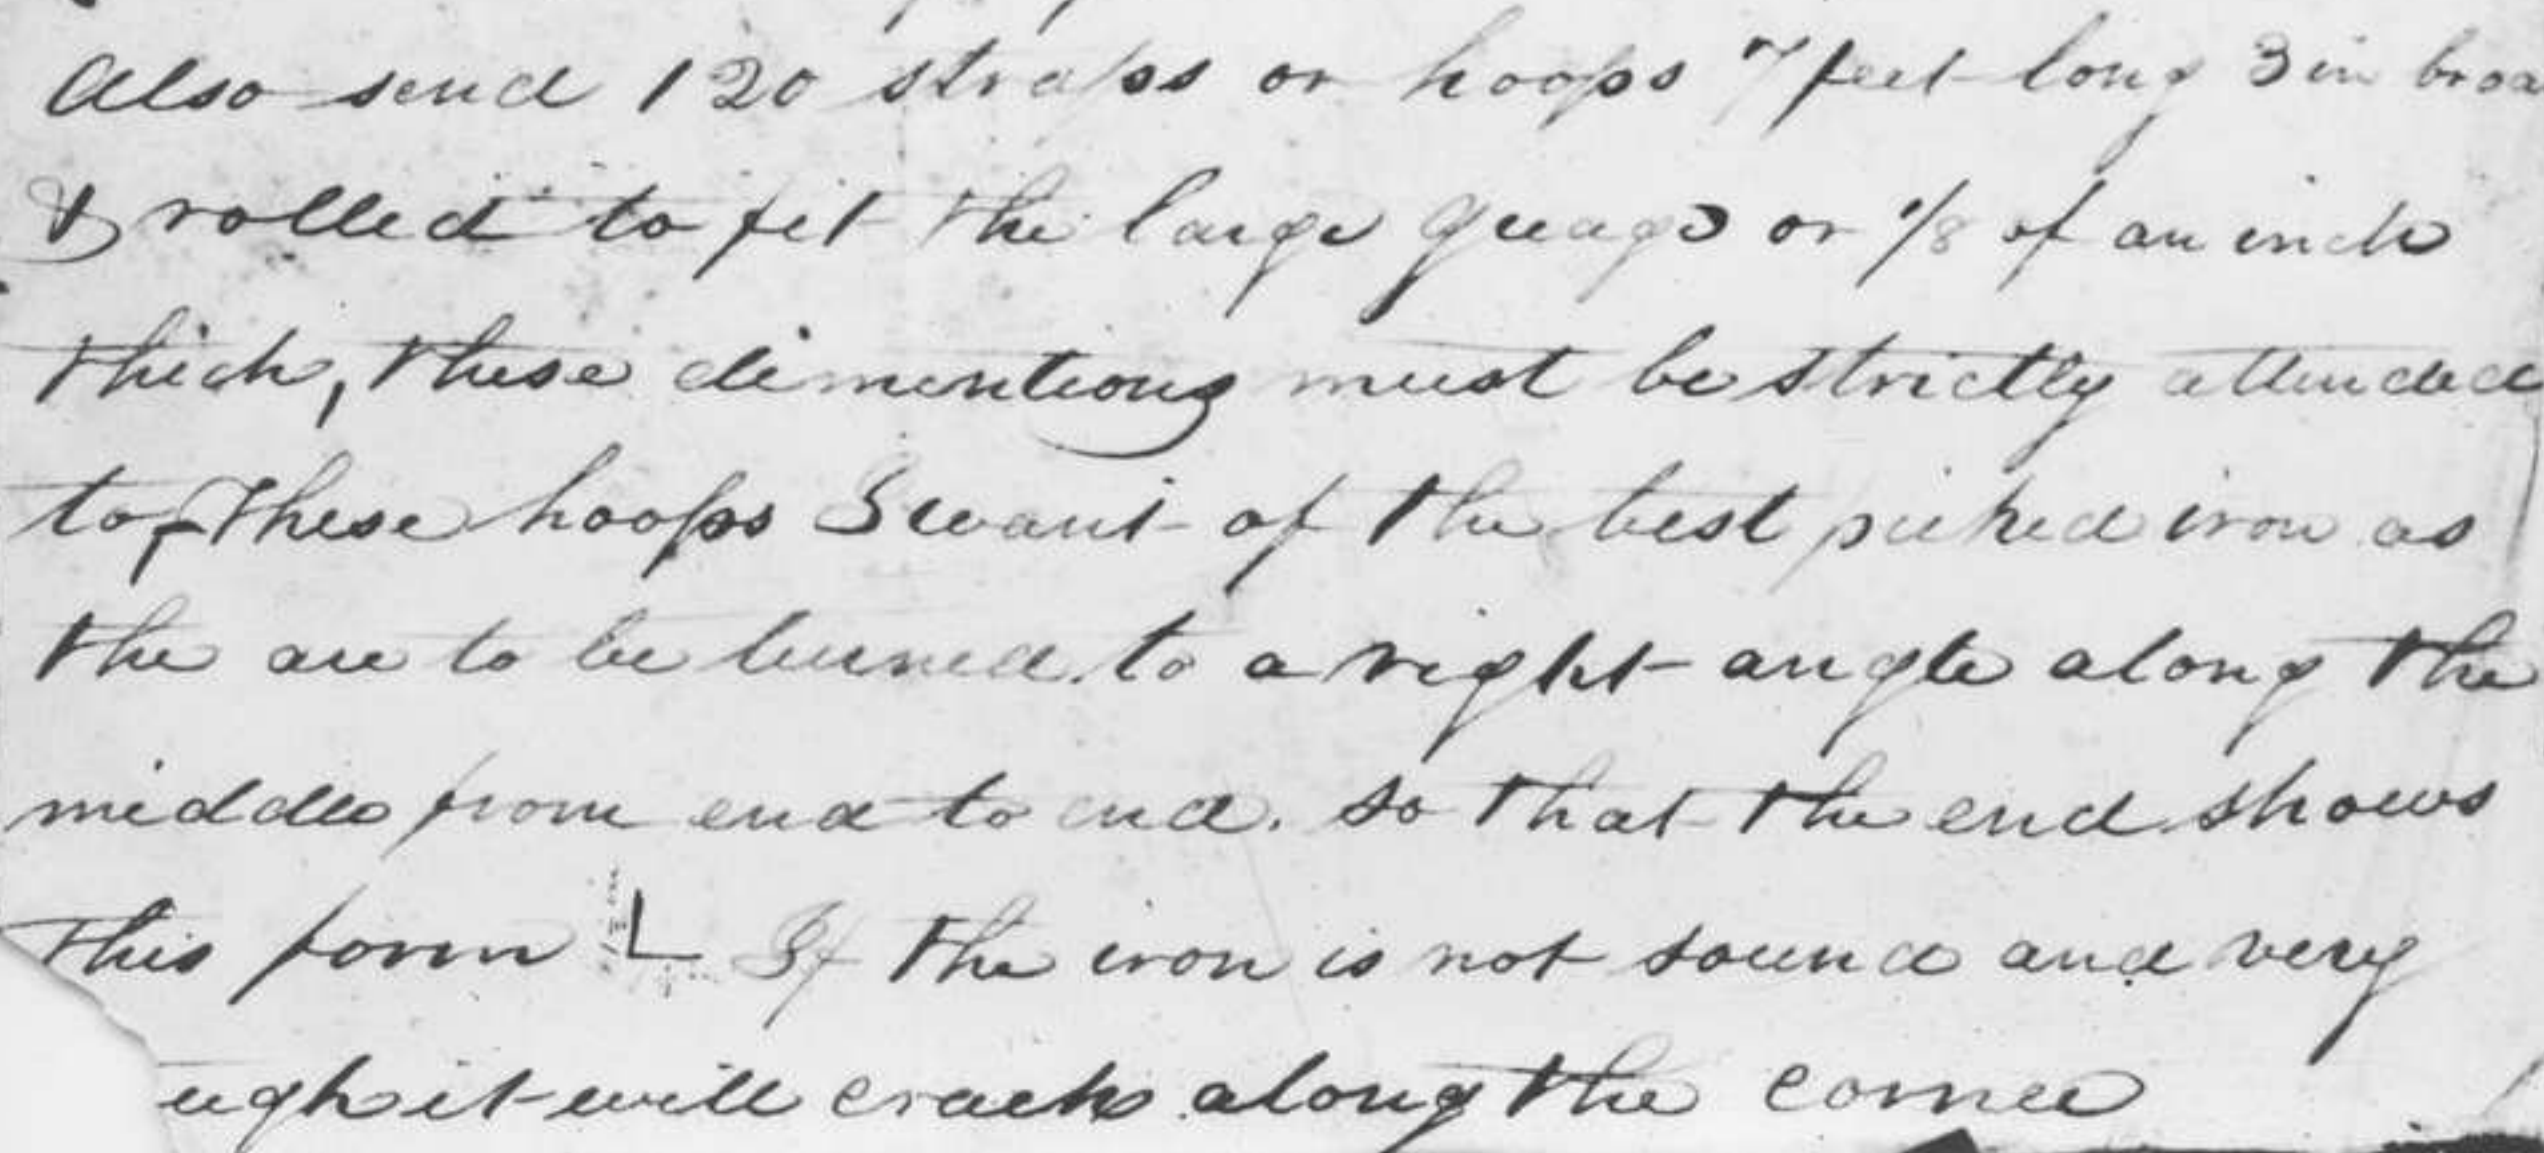 Also send 120 straps or hoops 7 feet long 3 in broa
& rolled to fit the large guage or 1/8 of an inch
thick, these dimentions must be strictly attended
to, These hoops I want of the best picked iron as
the are to be turned to a right angle along the
middle from end to end. so that the end shows
this form L If the iron is not sound and very
ugh it will crack along the corner